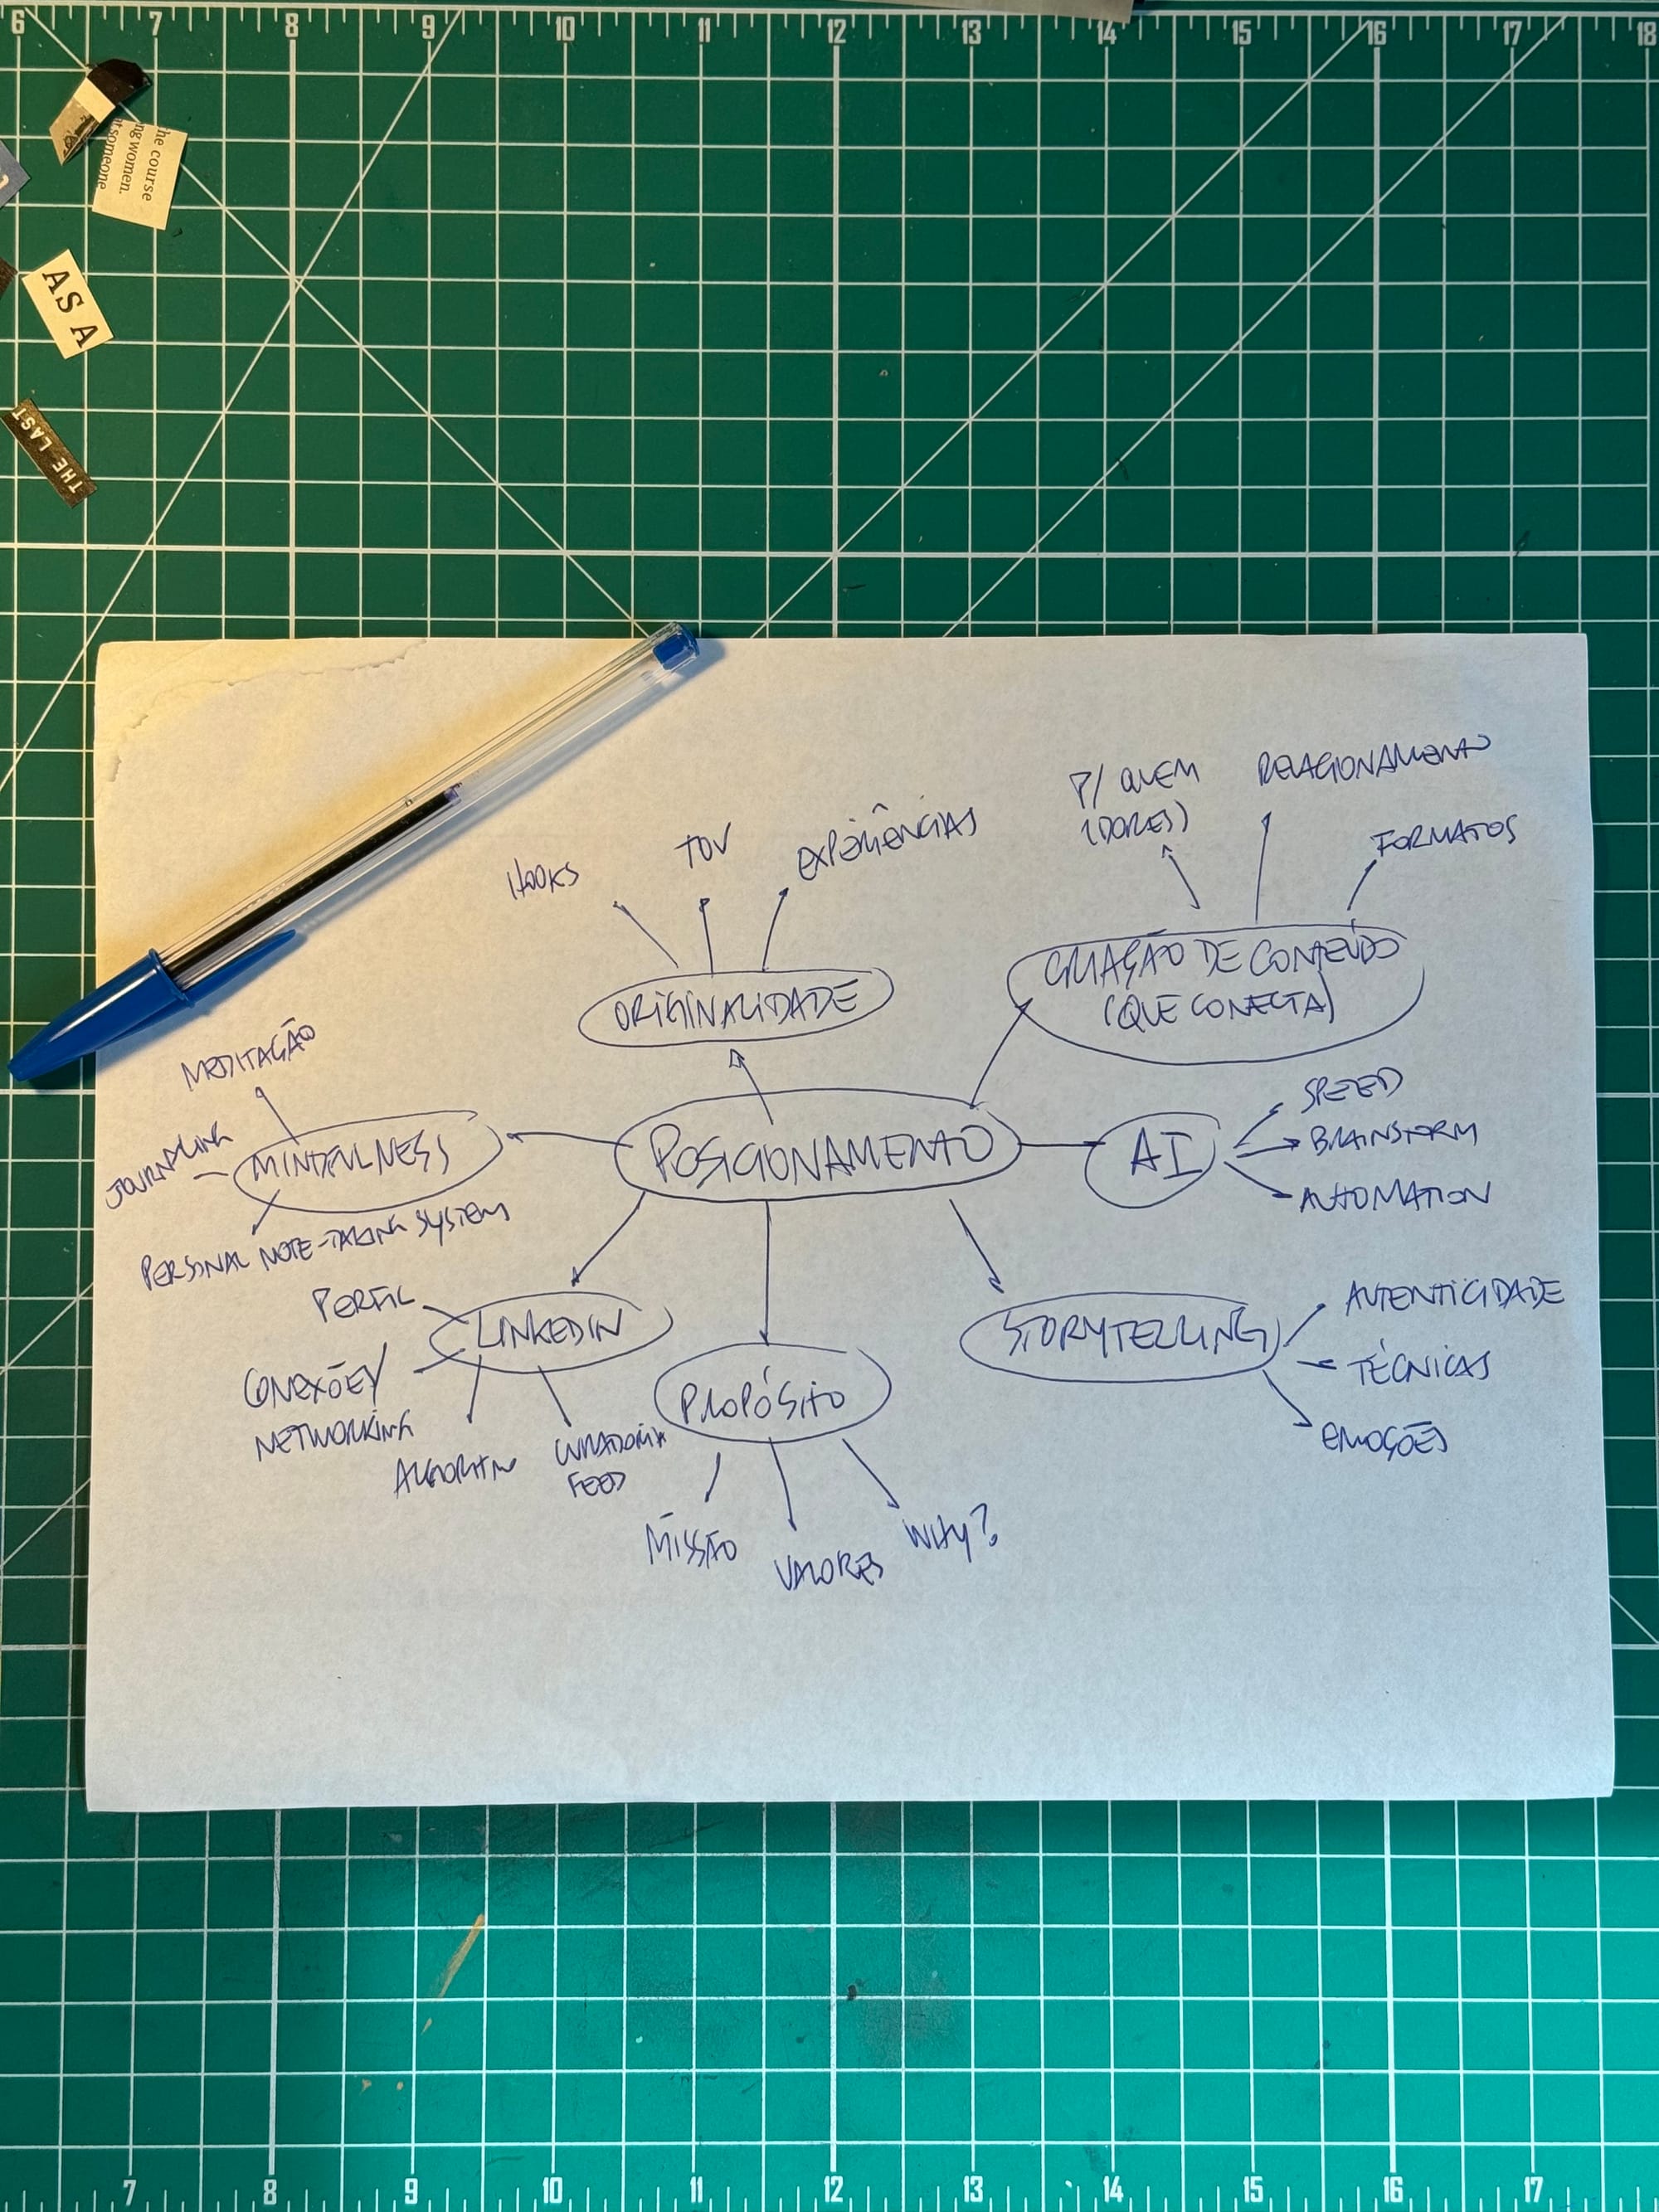 6 7 8 9 10 11 12 13 14 15 16 17 18
he course
ng women.
t someone
AS A
THE LAST
P/ QUEM
(DORES)
RELACIONAMENTO
FORMATOS
HOOKS
TOV
EXPERIÊNCIAS
CRIAÇÃO DE CONTEÚDO
(QUE CONECTA)
ORIGINALIDADE
MEDITAÇÃO
JOURNALING
MINDFULNESS
PERSONAL NOTE-TAKING SYSTEM
POSICIONAMENTO
AI
SPEED
BRAINSTORM
AUTOMATION
PERFIL
LINKEDIN
CONEXÕES/
NETWORKING
ALGORITMO
CURADORIA
FEED
PROPÓSITO
MISSÃO
VALORES
WHY?
STORYTELLING
AUTENTICIDADE
TÉCNICAS
EMOÇÕES
7 8 9 10 11 12 13 14 15 16 17